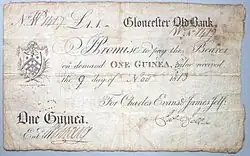 Gloucester Old Bank.
I Promise to pay the Bearer
on demand ONE GUINEA, value received
the 9 day of Nov 1813
For Charles Evans & James Jelf
One Guinea.
Entd